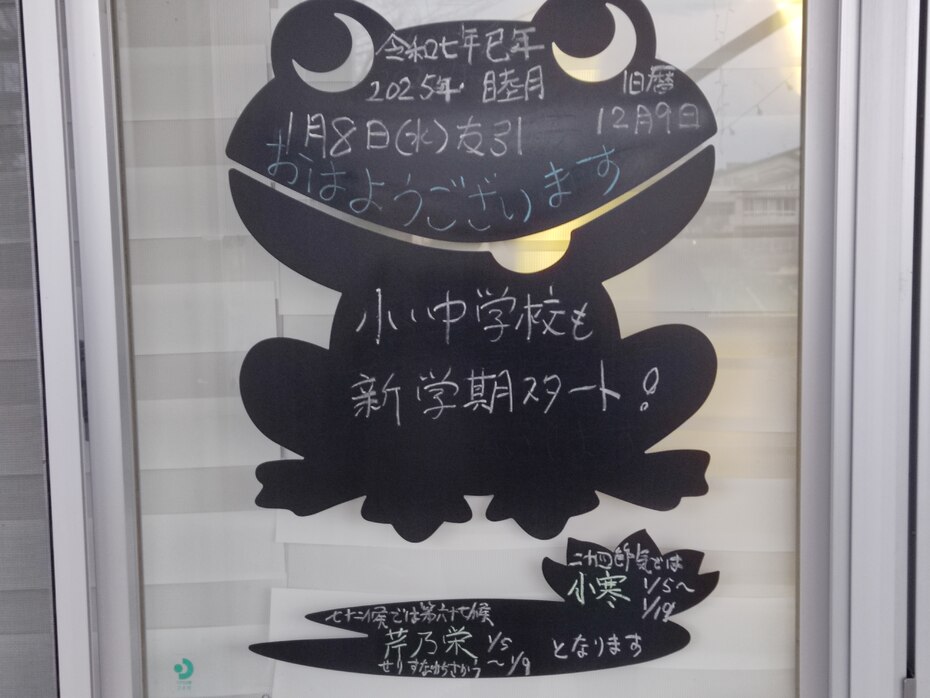 令和七年巳年
2025年 睦月 旧暦
1月8日(水)友引 12月9日
おはようございます
小・中学校も
新学期スタート!
二十四節気では
小寒 1/5〜
1/19
七十二候では第六十七候
芹乃栄 1/5
せりすなわちさかう 〜1/9 となります